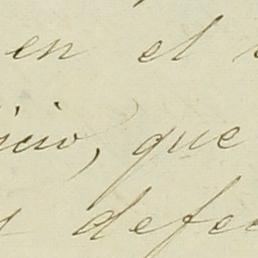 en el
icio, que
defec